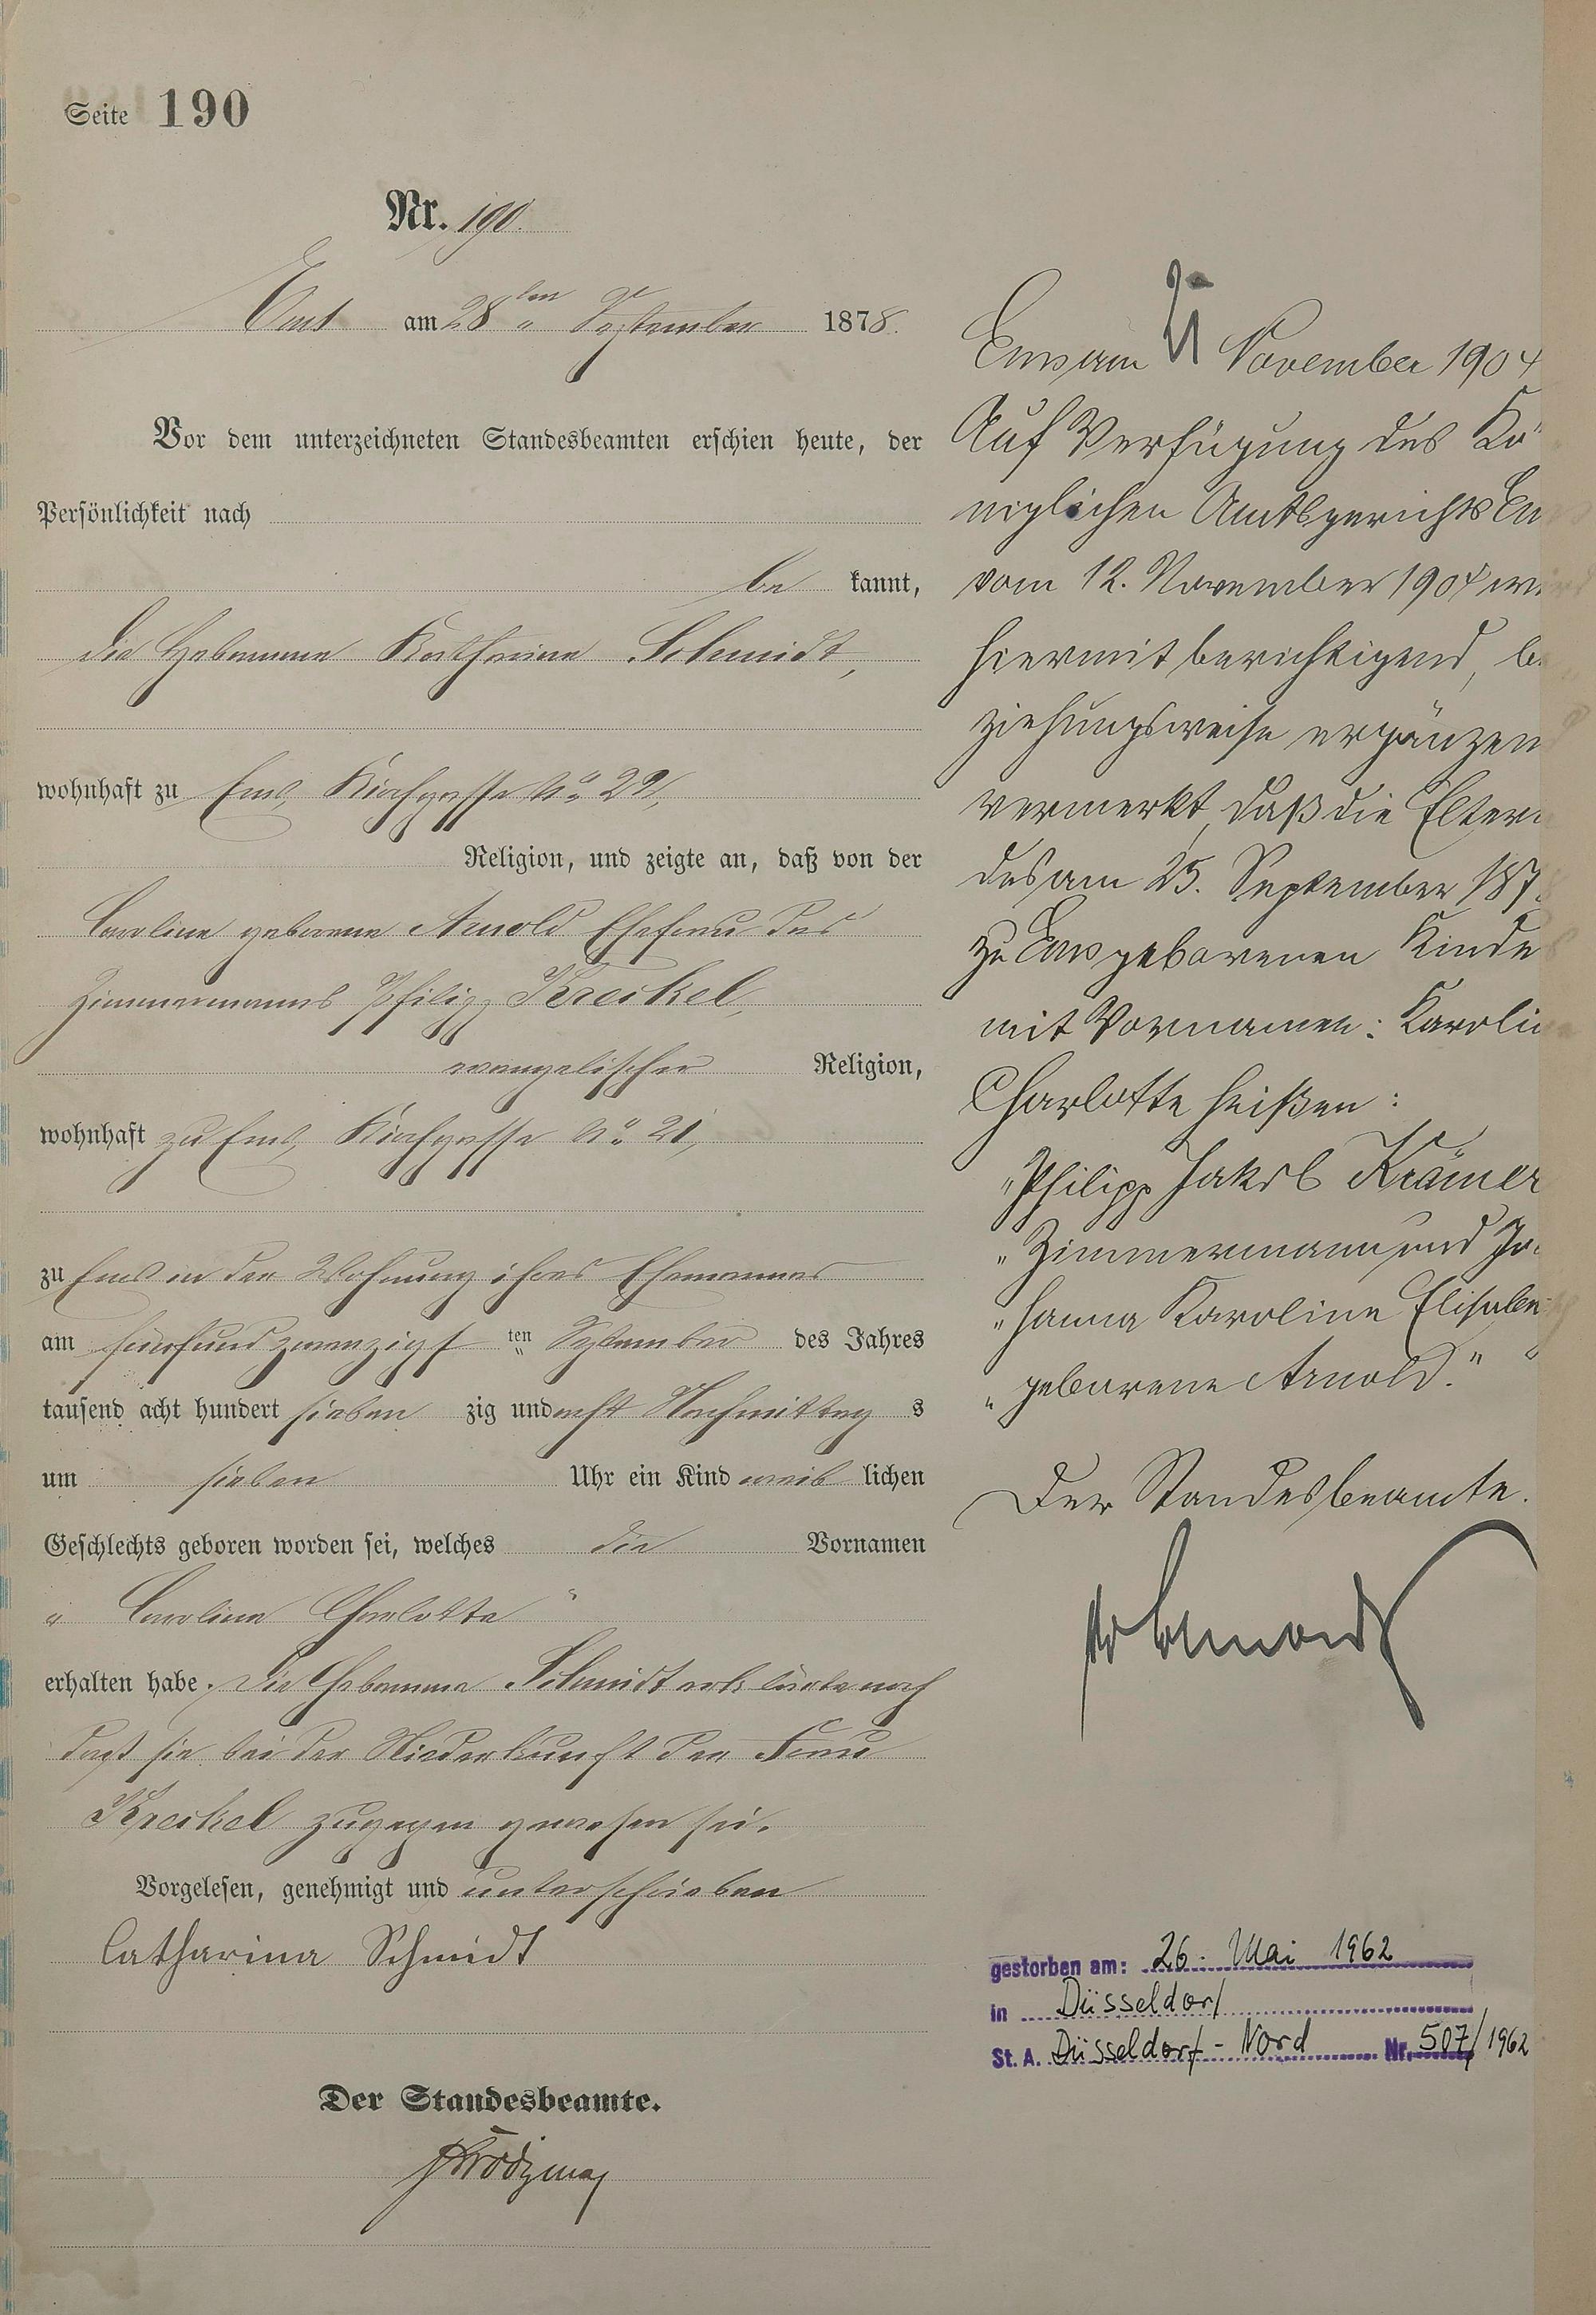 Seite 190
Nr. 190.
Ems am 28ten September 1878.
Vor dem unterzeichneten Standesbeamten erschien heute, der
Persönlichkeit nach
be kannt,
die Hebamme Katharina Schmidt,
wohnhaft zu Ems, Kirchgasse No 22,
Religion, und zeigte an, daß von der
Caroline geborene Arnold Ehefrau des
Zimmermanns Philipp Kreikel,
evangelischer Religion,
wohnhaft zu Ems, Kirchgasse No 21,
zu Ems in der Wohnung ihres Ehemannes
am fünfundzwanzigsten September des Jahres
tausend acht hundert sieben zig und acht Nachmittag s
um sieben Uhr ein Kind weib lichen
Geschlechts geboren worden sei, welches die Vornamen
„Caroline Charlotte“
erhalten habe. Die Hebamme Schmidt erklärte noch
daß sie bei der Niederkunft der Frau
Kreikel zugegen gewesen sei.
Vorgelesen, genehmigt und unterschrieben
Catharina Schmidt
Der Standesbeamte.
Ems am November 1904
Auf Verfügung des Kö-
niglichen Amtsgerichts Em
vom 12. November 1904 wi
hiermit berichtigend, be
ziehungsweise ergänzen
vermerkt, daß die Eltern
des am 25. September 187
zu Ems geborenen Kinde
mit Vornamen: Karolin
Charlotte heißen:
„Philipp Jakob Krämer
„Zimmermann und Jo-
„hanna Karoline Elisabe
„geborene Arnold.“
Der Standesbeamte.
gestorben am: 26. Mai 1962
in Düsseldorf
St. A. Düsseldorf-Nord Nr. 507/1962